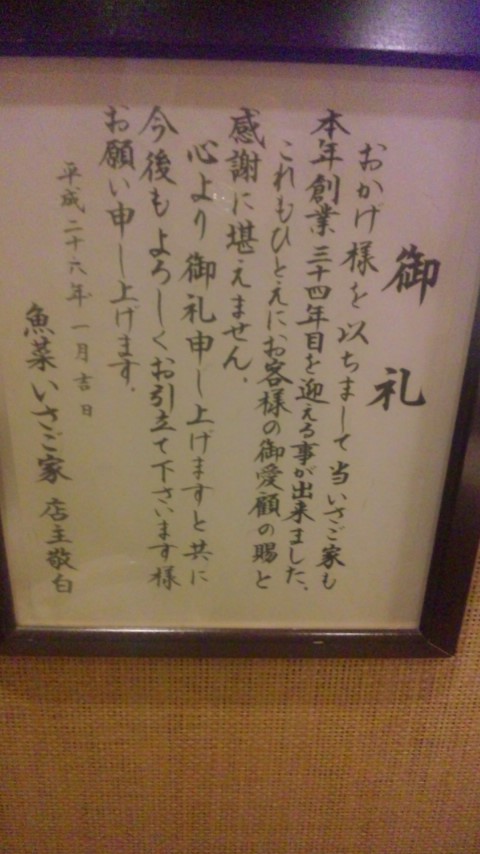 御礼
おかげ様を以ちまして当いさご家も
本年創業三十四年目を迎える事が出来ました、
これもひとえにお客様の御愛顧の賜と
感謝に堪えません。
心より御礼申し上げますと共に
今後もよろしくお引立て下さいます様
お願い申し上げます。
平成二十六年一月吉日
魚菜いさご家 店主敬白